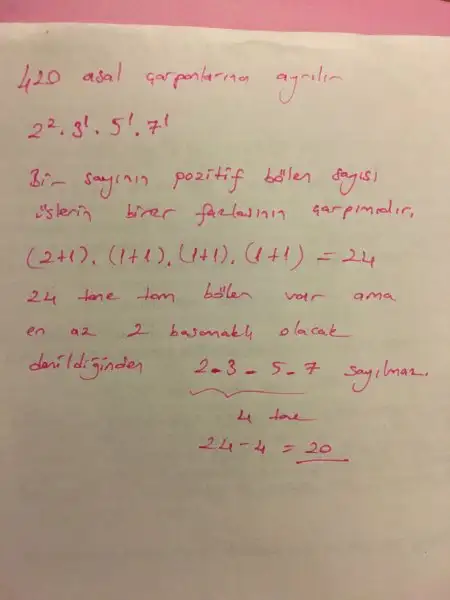 420 asal çarpanlarına ayrılır
2². 3¹. 5¹. 7¹
Bir sayının pozitif bölen sayısı
üslerin birer fazlasının çarpımıdır.
(2+1). (1+1). (1+1). (1+1) = 24
24 tane tam bölen var ama
en az 2 basamaklı olacak
denildiğinden 2-3-5-7 sayılmaz.
4 tane
24-4 = 20